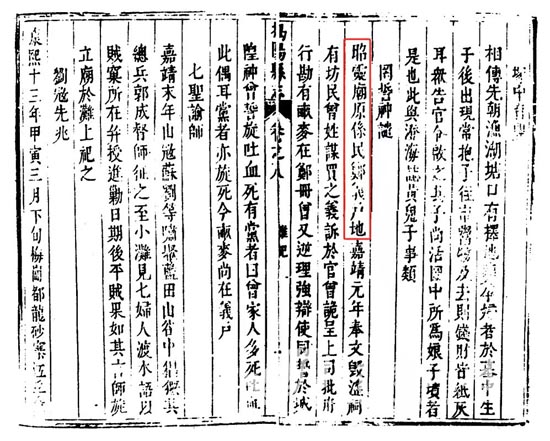 塚中育
相傳先朝漁湖塘口有擇地葬孕婦者於墓中生
子後出現常抱子往市買物及去則錢財皆紙灰
耳衆告官令啟之其子尚活國中所為娘子墳者
是也此與海誌黃鬼子事類
罔誓神譴
昭靈廟原係民鄭義戶地嘉靖元年奉文毀淫祠
有坊民曾姓謀買之義訴於官曾詭呈上司批府
行勘有畝麥在鄭冊曾又逆理強辯使同誓於城
揭陽縣志 卷之八 雜記
隍神曾誓旋吐血死有黨者曰曾家人多死吐血
此偶耳黨者亦旋死今畝麥尚在義戶
七聖諭師
嘉靖末年山寇蘇劉等嘯聚藍田山谷中倡亂其
總兵郭成督師征之至小灘見七婦人渡水語以
賊寨所在并授進勦日期後平賊果如其言師旋
立廟於灘上祀之
劉寇先兆
康熙十三年甲寅三月下旬梅岡都龍砂寨